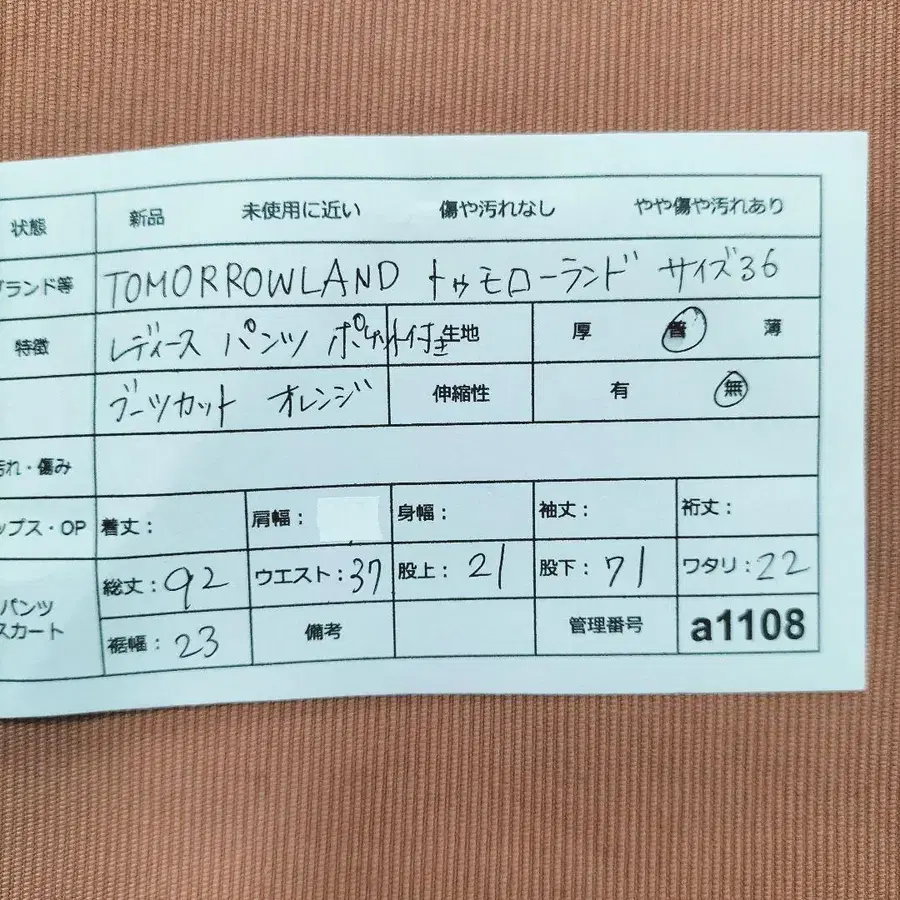 状態 新品 未使用に近い 傷や汚れなし やや傷や汚れあり
ブランド等 TOMORROWLAND トゥモローランド サイズ36
特徴 レディース パンツ ポケット付き 生地 厚 普 薄
ブーツカット オレンジ 伸縮性 有 無
汚れ・傷み
ップス・OP 着丈: 肩幅: 身幅: 袖丈: 裄丈:
パンツ スカート 総丈:92 ウエスト:37 股上:21 股下:71 ワタリ:22
裾幅:23 備考 管理番号 a1108